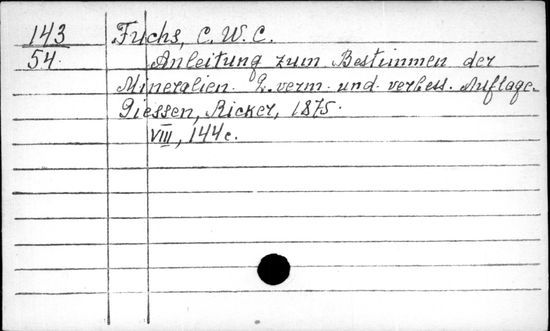 143 Fuchs, C. W. C.
54. Anleitung zum Bestimmen der
Mineralien. 2. verm. und. verbess. Auflage.
Giessen, Ricker, 1875.
VIII, 144 c.